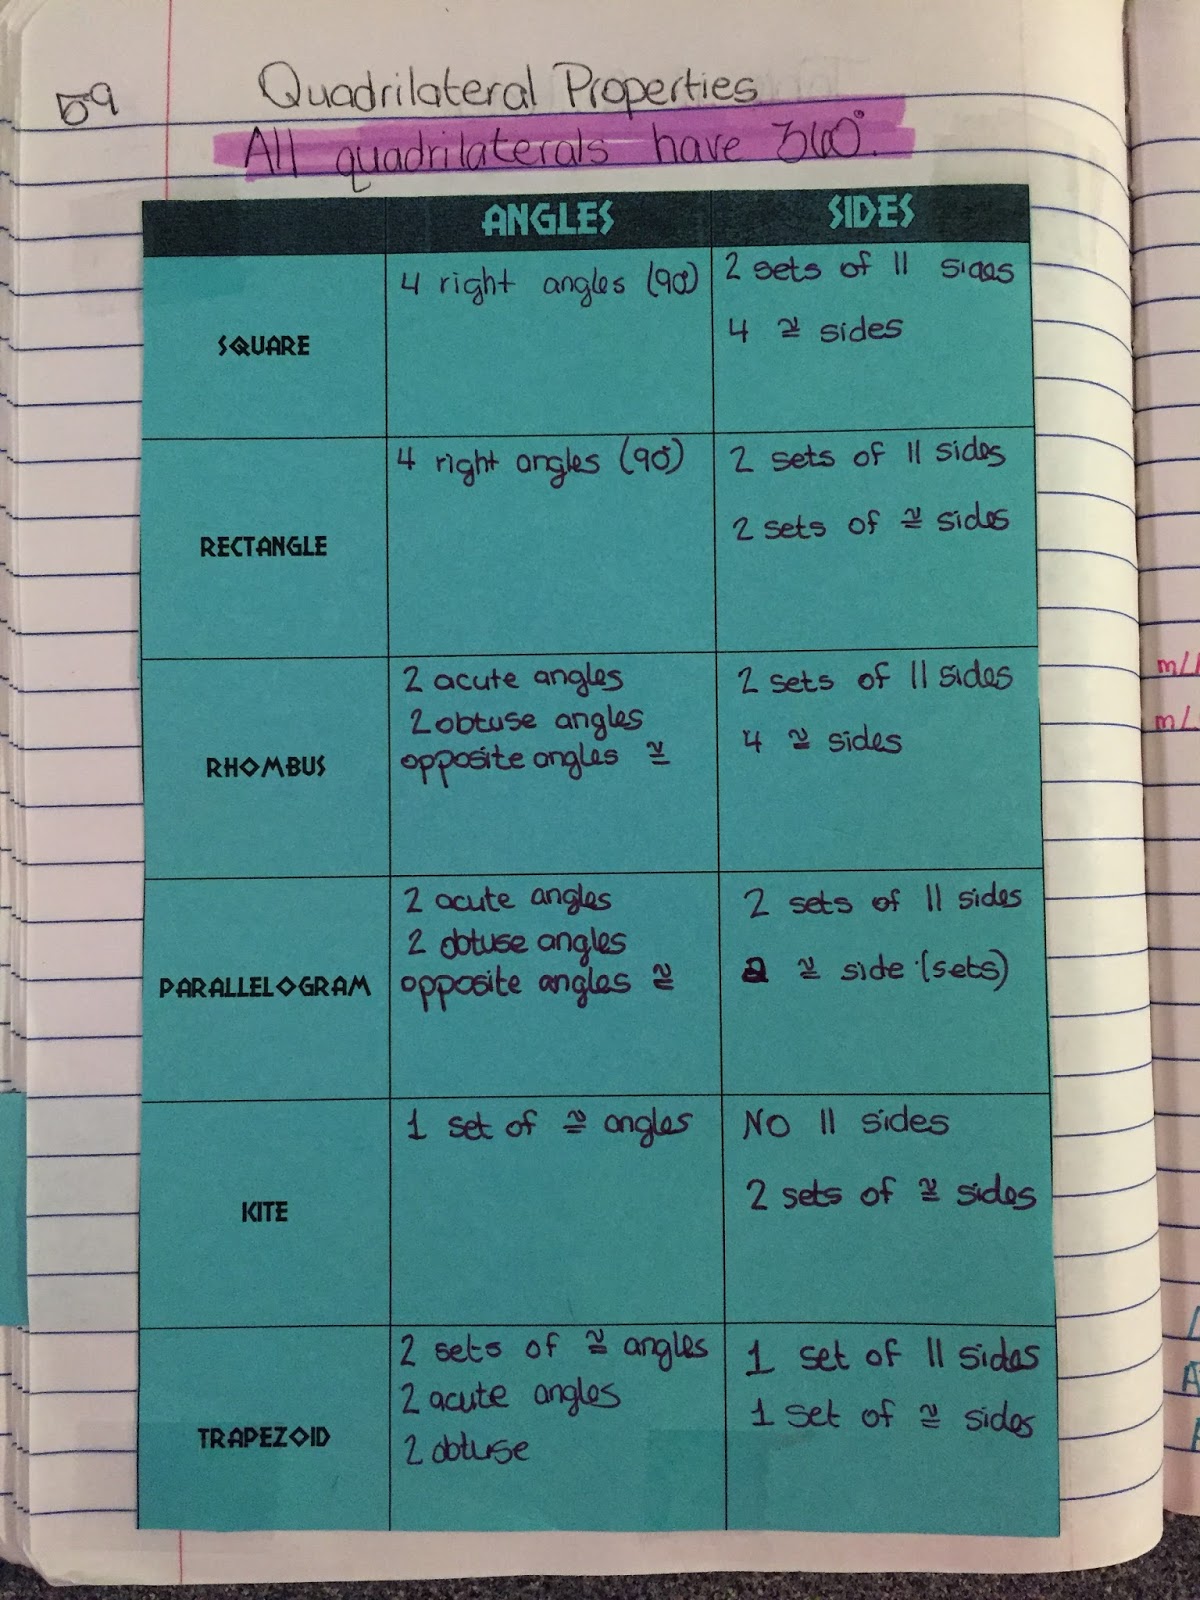 59
Quadrilateral Properties
All quadrilaterals have 360°.
ANGLES SIDES
SQUARE
4 right angles (90°)
2 sets of || sides
4 ≅ sides
RECTANGLE
4 right angles (90°)
2 sets of || sides
2 sets of ≅ sides
RHOMBUS
2 acute angles
2 obtuse angles
opposite angles ≅
2 sets of || sides
4 ≅ sides
PARALLELOGRAM
2 acute angles
2 obtuse angles
opposite angles ≅
2 sets of || sides
2 ≅ side (sets)
KITE
1 set of ≅ angles
NO || sides
2 sets of ≅ sides
TRAPEZOID
2 sets of ≅ angles
2 acute angles
2 obtuse
1 set of || sides
1 set of ≅ sides